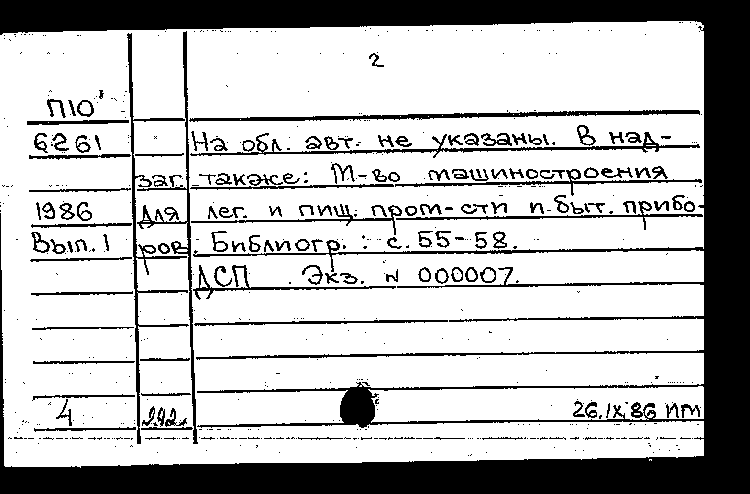 2
П10'
6261 На обл. авт. не указаны. В над-
заг. также: М-во машиностроения
1986 для лег. и пищ. пром-сти и быт. прибо-
Вып. 1 ров. Библиогр.: с. 55-58.
ДСП Экз. № 000007.
4 26.IX.86 ИМ